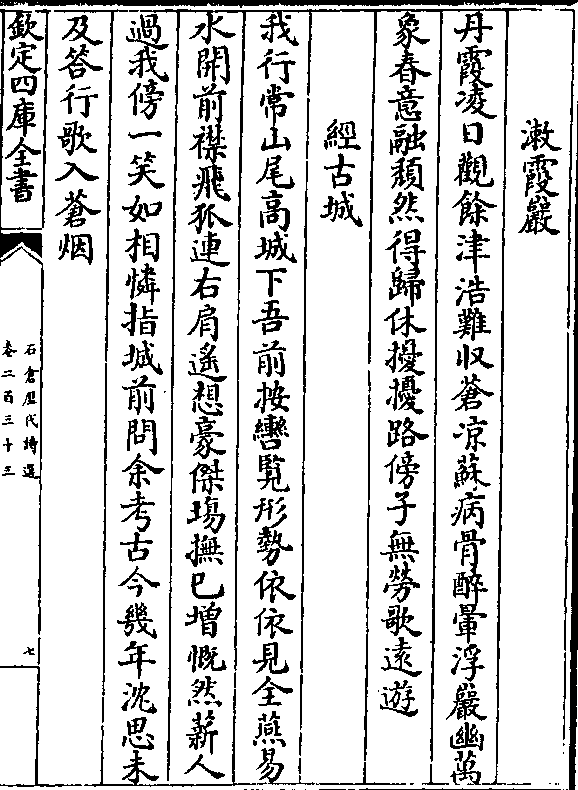 漱霞巖
丹霞凌日觀餘津浩難収蒼凉蘇病骨醉暈浮巖幽萬
象春意融頽然得歸休擾擾路傍子無勞歌遠遊
經古城
我行常山尾高城下吾前按轡覧形勢依依見全燕易
水開前襟飛狐連右肩遙想豪傑塲撫已增慨然薪人
過我傍一笑如相憐指城前問余考古今幾年沈思未
及答行歌入蒼烟
欽定四庫全書
石倉歷代詩選
卷二百三十三
七